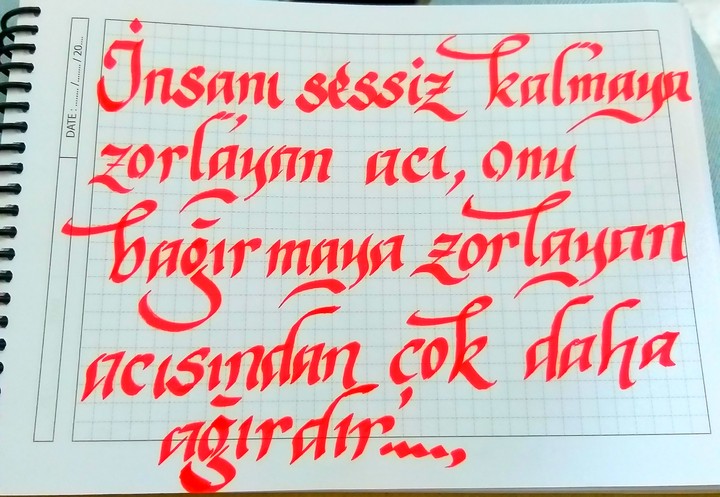 DATE : ......../......../ 20....
İnsanı sessiz kalmaya
zorlayan acı, onu
bağırmaya zorlayan
acısından çok daha
ağırdır....,